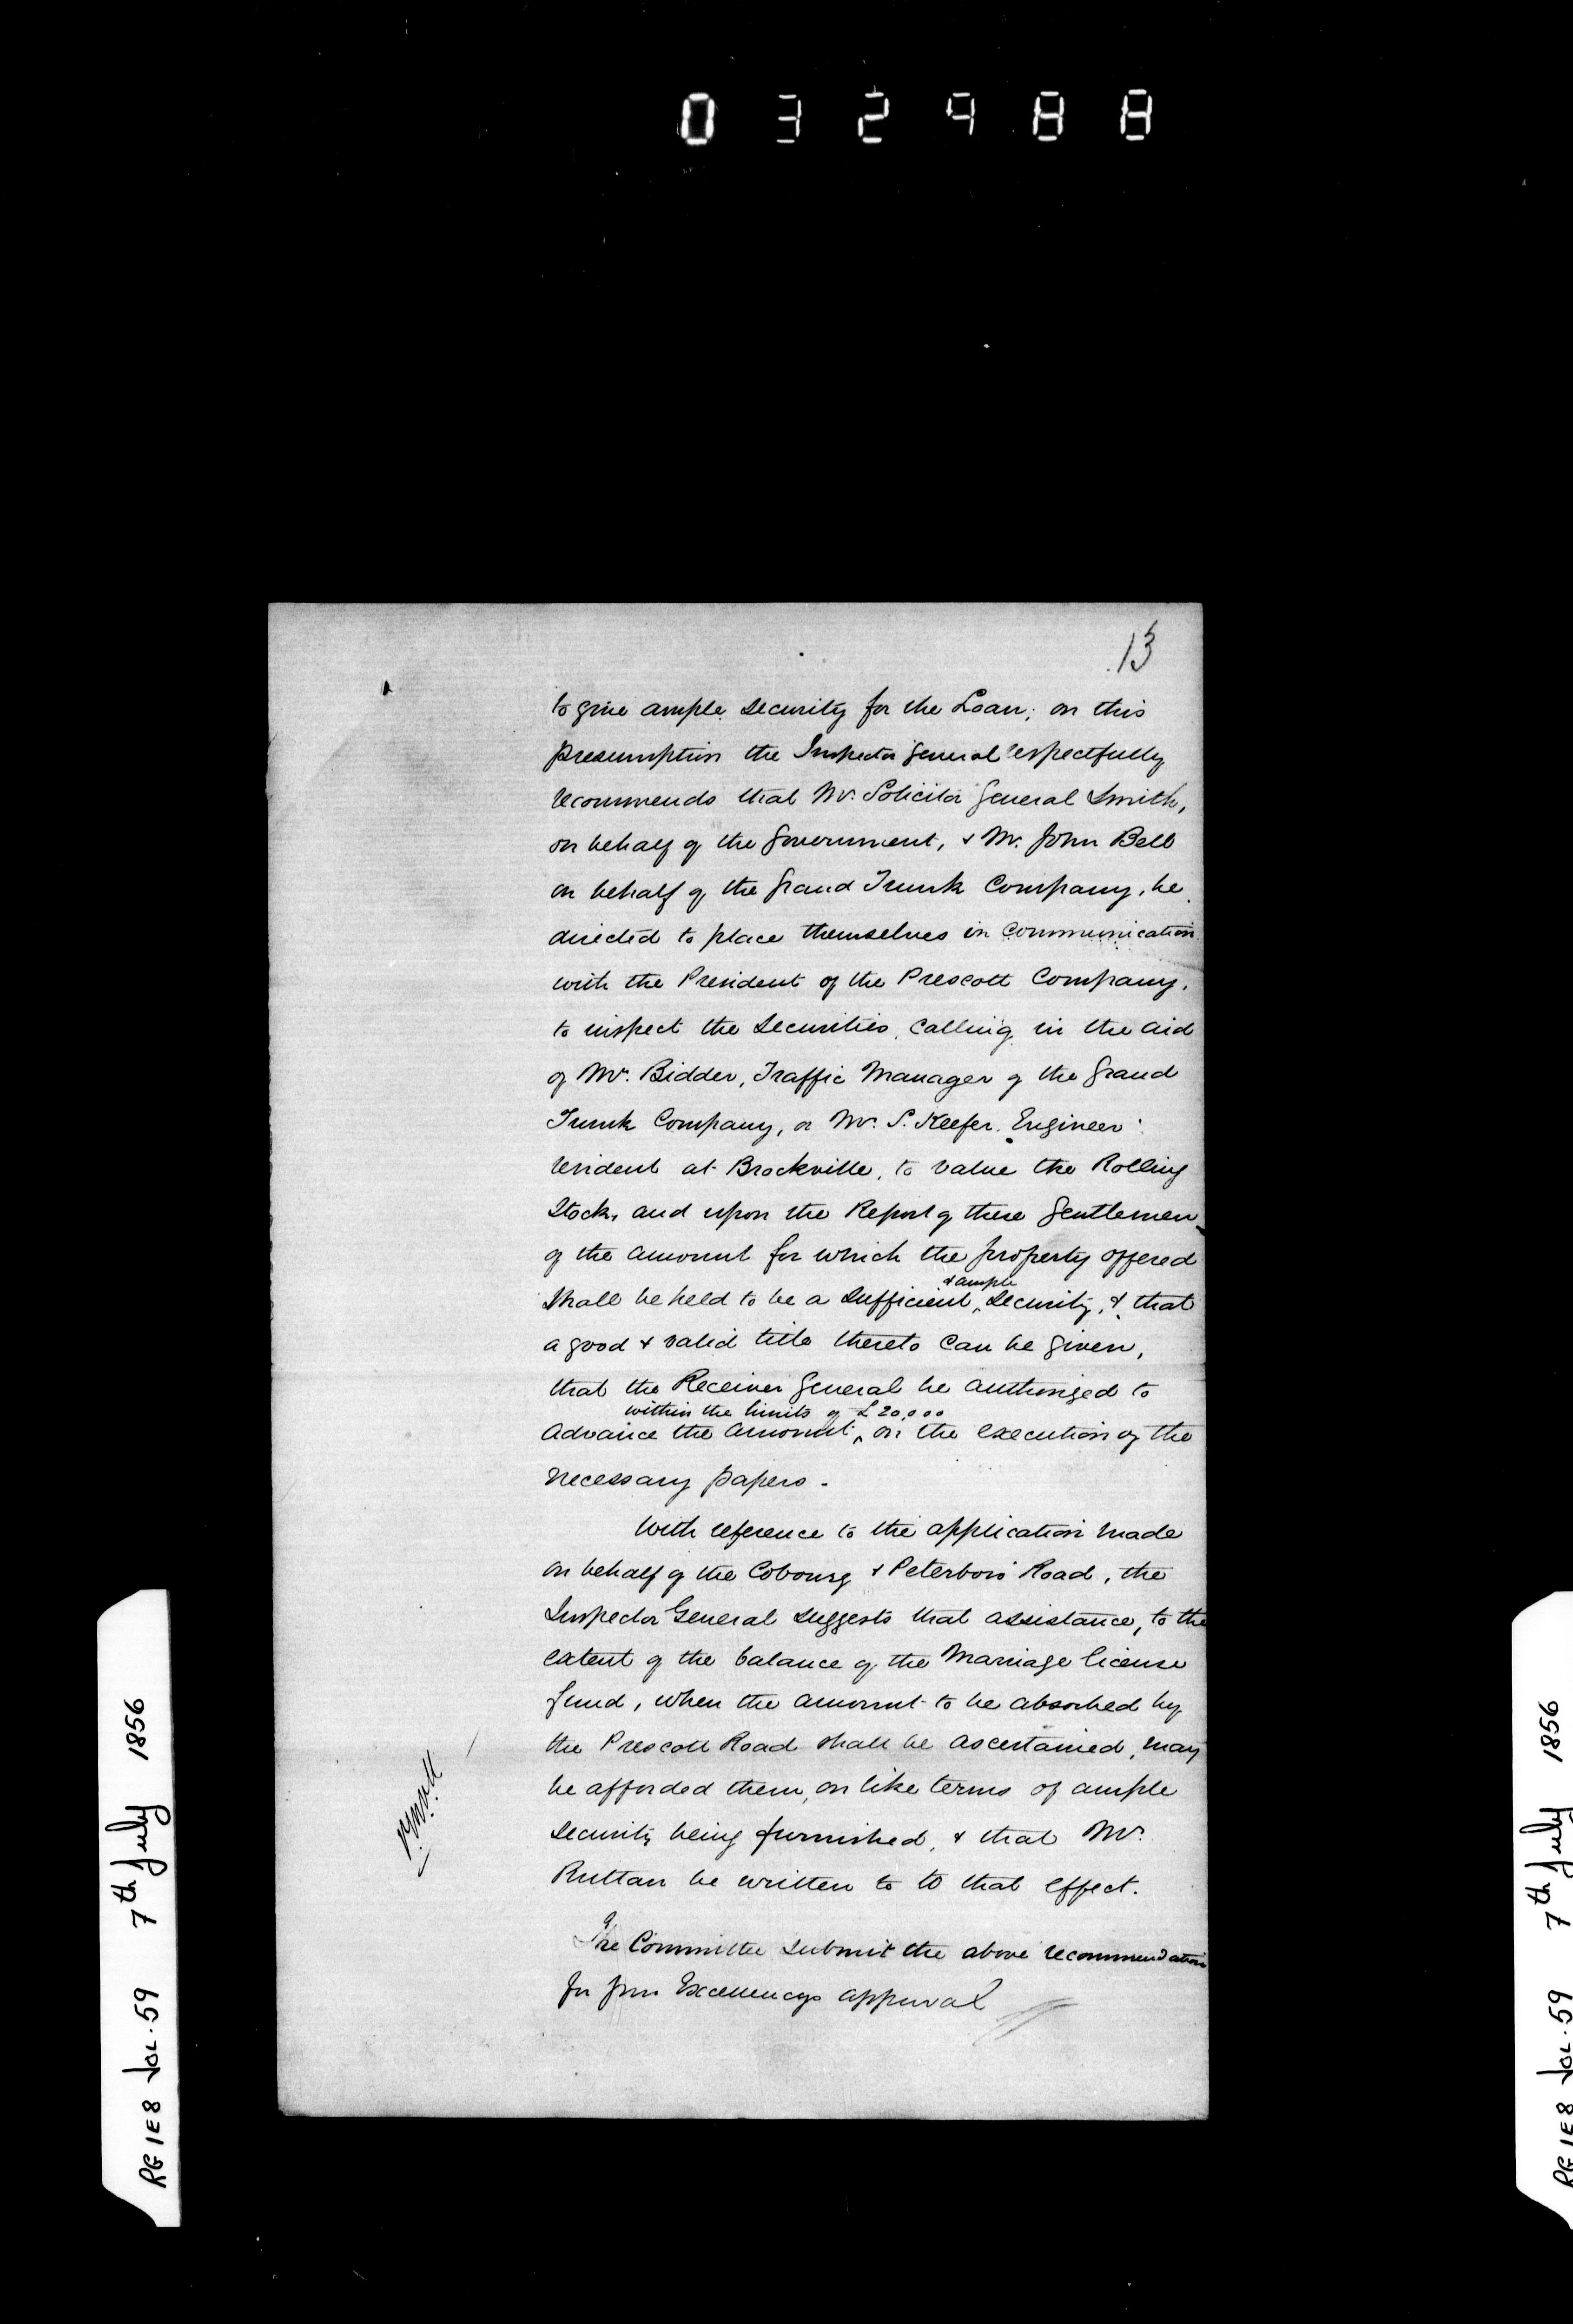 032988
13
to give ample security for the Loan; on this
presumption the Inspector General respectfully
recommends that Mr. Solicitor General Smith,
on behalf of the Government, & Mr. John Bell
on behalf of the Grand Trunk Company, be
directed to place themselves in communication
with the President of the Prescott Company,
to inspect the securities, calling in the aid
of Mr. Bidder, Traffic Manager of the Grand
Trunk Company, or Mr. S. Keefer, Engineer
resident at Brockville, to value the Rolling
Stock, and upon the Report of these Gentlemen
of the amount for which the property offered
& ample
shall be held to be a sufficient, security, & that
a good & valid title thereto can be given,
that the Receiver General be authorized to
within the limits of £20,000
advance the amount, on the execution of the
necessary papers.
With reference to the application made
on behalf of the Cobourg & Peterboro' Road, the
Inspector General suggests that assistance, to the
extent of the balance of the Marriage license
fund, when the amount to be absorbed by
the Prescott Road shall be ascertained, may
be afforded them, on like terms of ample
security being furnished, & that Mr.
Ruttan be written to to that effect.
The Committee submit the above recommendation
for your Excellencys approval
RG 1 E8 Vol. 59 7th July 1856
RG 1 E8 Vol. 59 7th July 1856